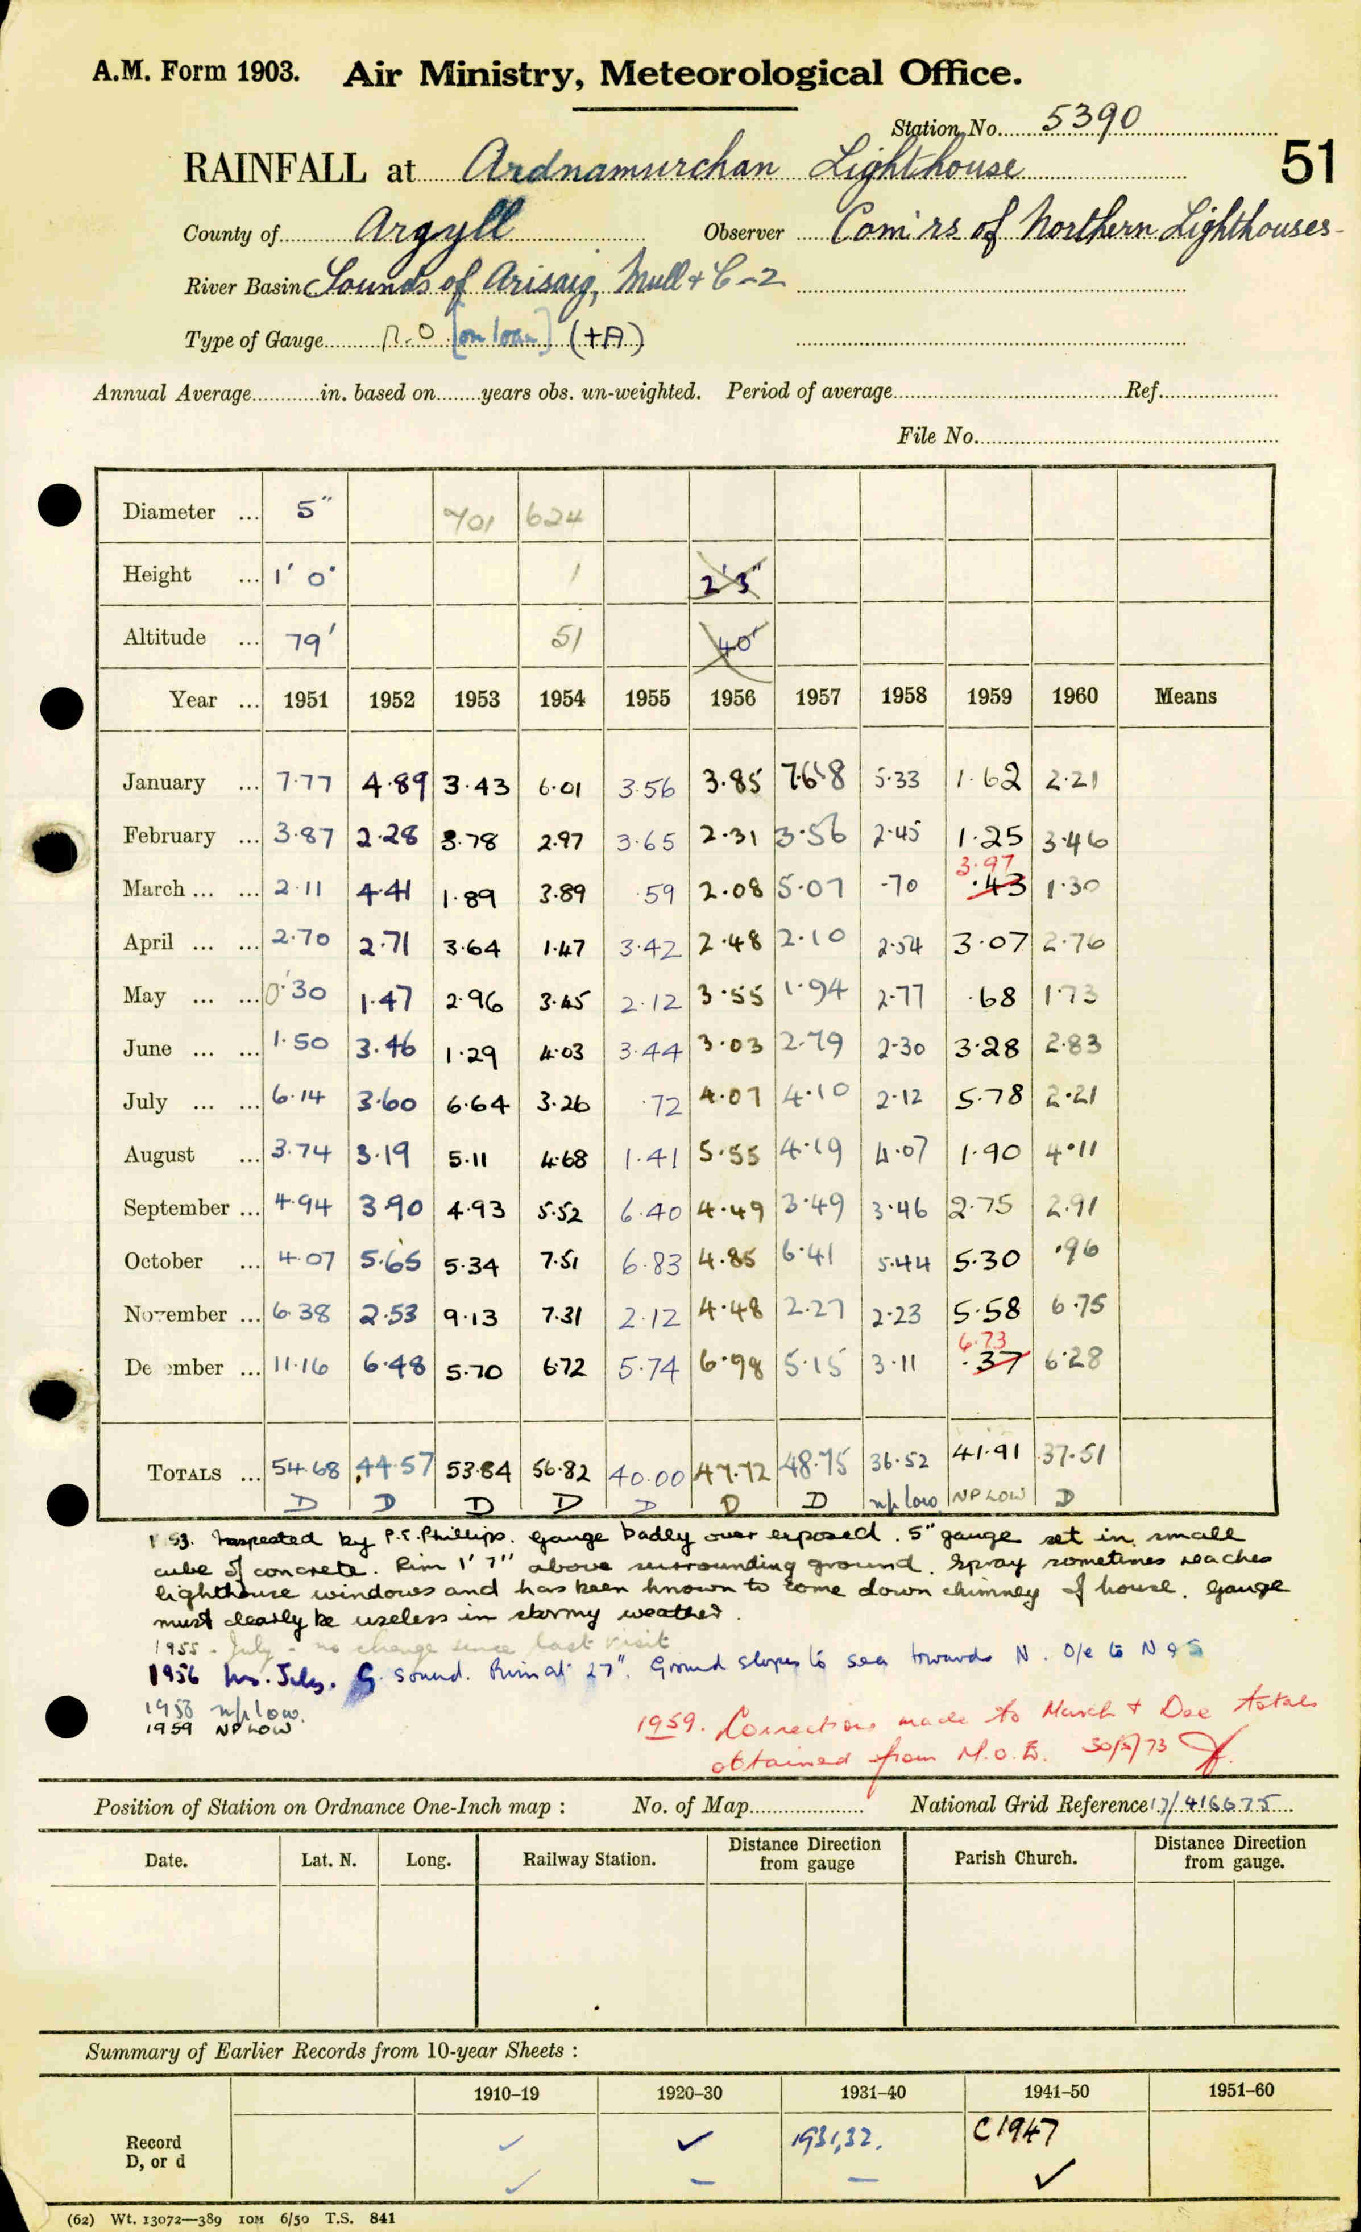 A.M. Form 1903. Air Ministry, Meteorological Office.
Station No. 5390
RAINFALL at Ardnamurchan Lighthouse 51
County of Argyll Observer Com'rs of Northern Lighthouses-
River Basin Sounds of Arisaig, Mull & C-2
Type of Gauge [on loan] (+A)
Annual Average in. based on years obs. un-weighted. Period of average Ref.
File No.
Diameter ... 5" 701 624
Height ... 1' 0" 1 2' 3"
Altitude ... 79' 51 40'
Year ... 1951 1952 1953 1954 1955 1956 1957 1958 1959 1960 Means
January ... 7.77 4.89 3.43 6.01 3.56 3.85 7.68 5.33 1.62 2.21
February ... 3.87 2.28 3.78 2.97 3.65 2.31 3.56 2.45 1.25 3.46
3.97
March ... ... 2.11 4.41 1.89 3.89 .59 2.08 5.07 .70 .43 1.30
April ... ... 2.70 2.71 3.64 1.47 3.42 2.48 2.10 2.54 3.07 2.76
May ... ... 0.30 1.47 2.96 3.45 2.12 3.55 1.94 2.77 .68 1.73
June ... ... 1.50 3.46 1.29 4.03 3.44 3.03 2.79 2.30 3.28 2.83
July ... ... 6.14 3.60 6.64 3.26 .72 4.07 4.10 2.12 5.78 2.21
August ... 3.74 3.19 5.11 4.68 1.41 5.55 4.19 4.07 1.90 4.11
September ... 4.94 3.90 4.93 5.52 6.40 4.49 3.49 3.46 2.75 2.91
October ... 4.07 5.65 5.34 7.51 6.83 4.85 6.41 5.44 5.30 .96
November ... 6.38 2.53 9.13 7.31 2.12 4.48 2.27 2.23 5.58 6.75
6.73
De ember ... 11.16 6.48 5.70 6.72 5.74 6.98 5.15 3.11 .37 6.28
TOTALS ... 54.68 44.57 53.84 56.82 40.00 47.72 48.75 36.52 41.91 37.51
D D D D D D D np low NP LOW D
1953. Inspected by P.E. Phillips. Gauge badly over exposed. 5" gauge set in small
cube of concrete. Rim 1' 7" above surrounding ground. Spray sometimes reaches
lighthouse windows and has been known to come down chimney of house. Gauge
must clearly be useless in stormy weather.
1955 - July - no change since last visit
1956 Ins. July. G. sound. Rim at 27". Ground slopes to sea towards N. O/e to N & S
1958 np low.
1959 NP LOW
1959. Corrections made to March & Dec totals
obtained from M.O.E. 30/5/73
Position of Station on Ordnance One-Inch map : No. of Map National Grid Reference 17/416675
Date. Lat. N. Long. Railway Station. Distance Direction from gauge Parish Church. Distance Direction from gauge.
Summary of Earlier Records from 10-year Sheets :
1910–19 1920–30 1931–40 1941–50 1951–60
Record 1931,32. C1947
D, or d
(62) Wt. 13072—389 10M 6/50 T.S. 841